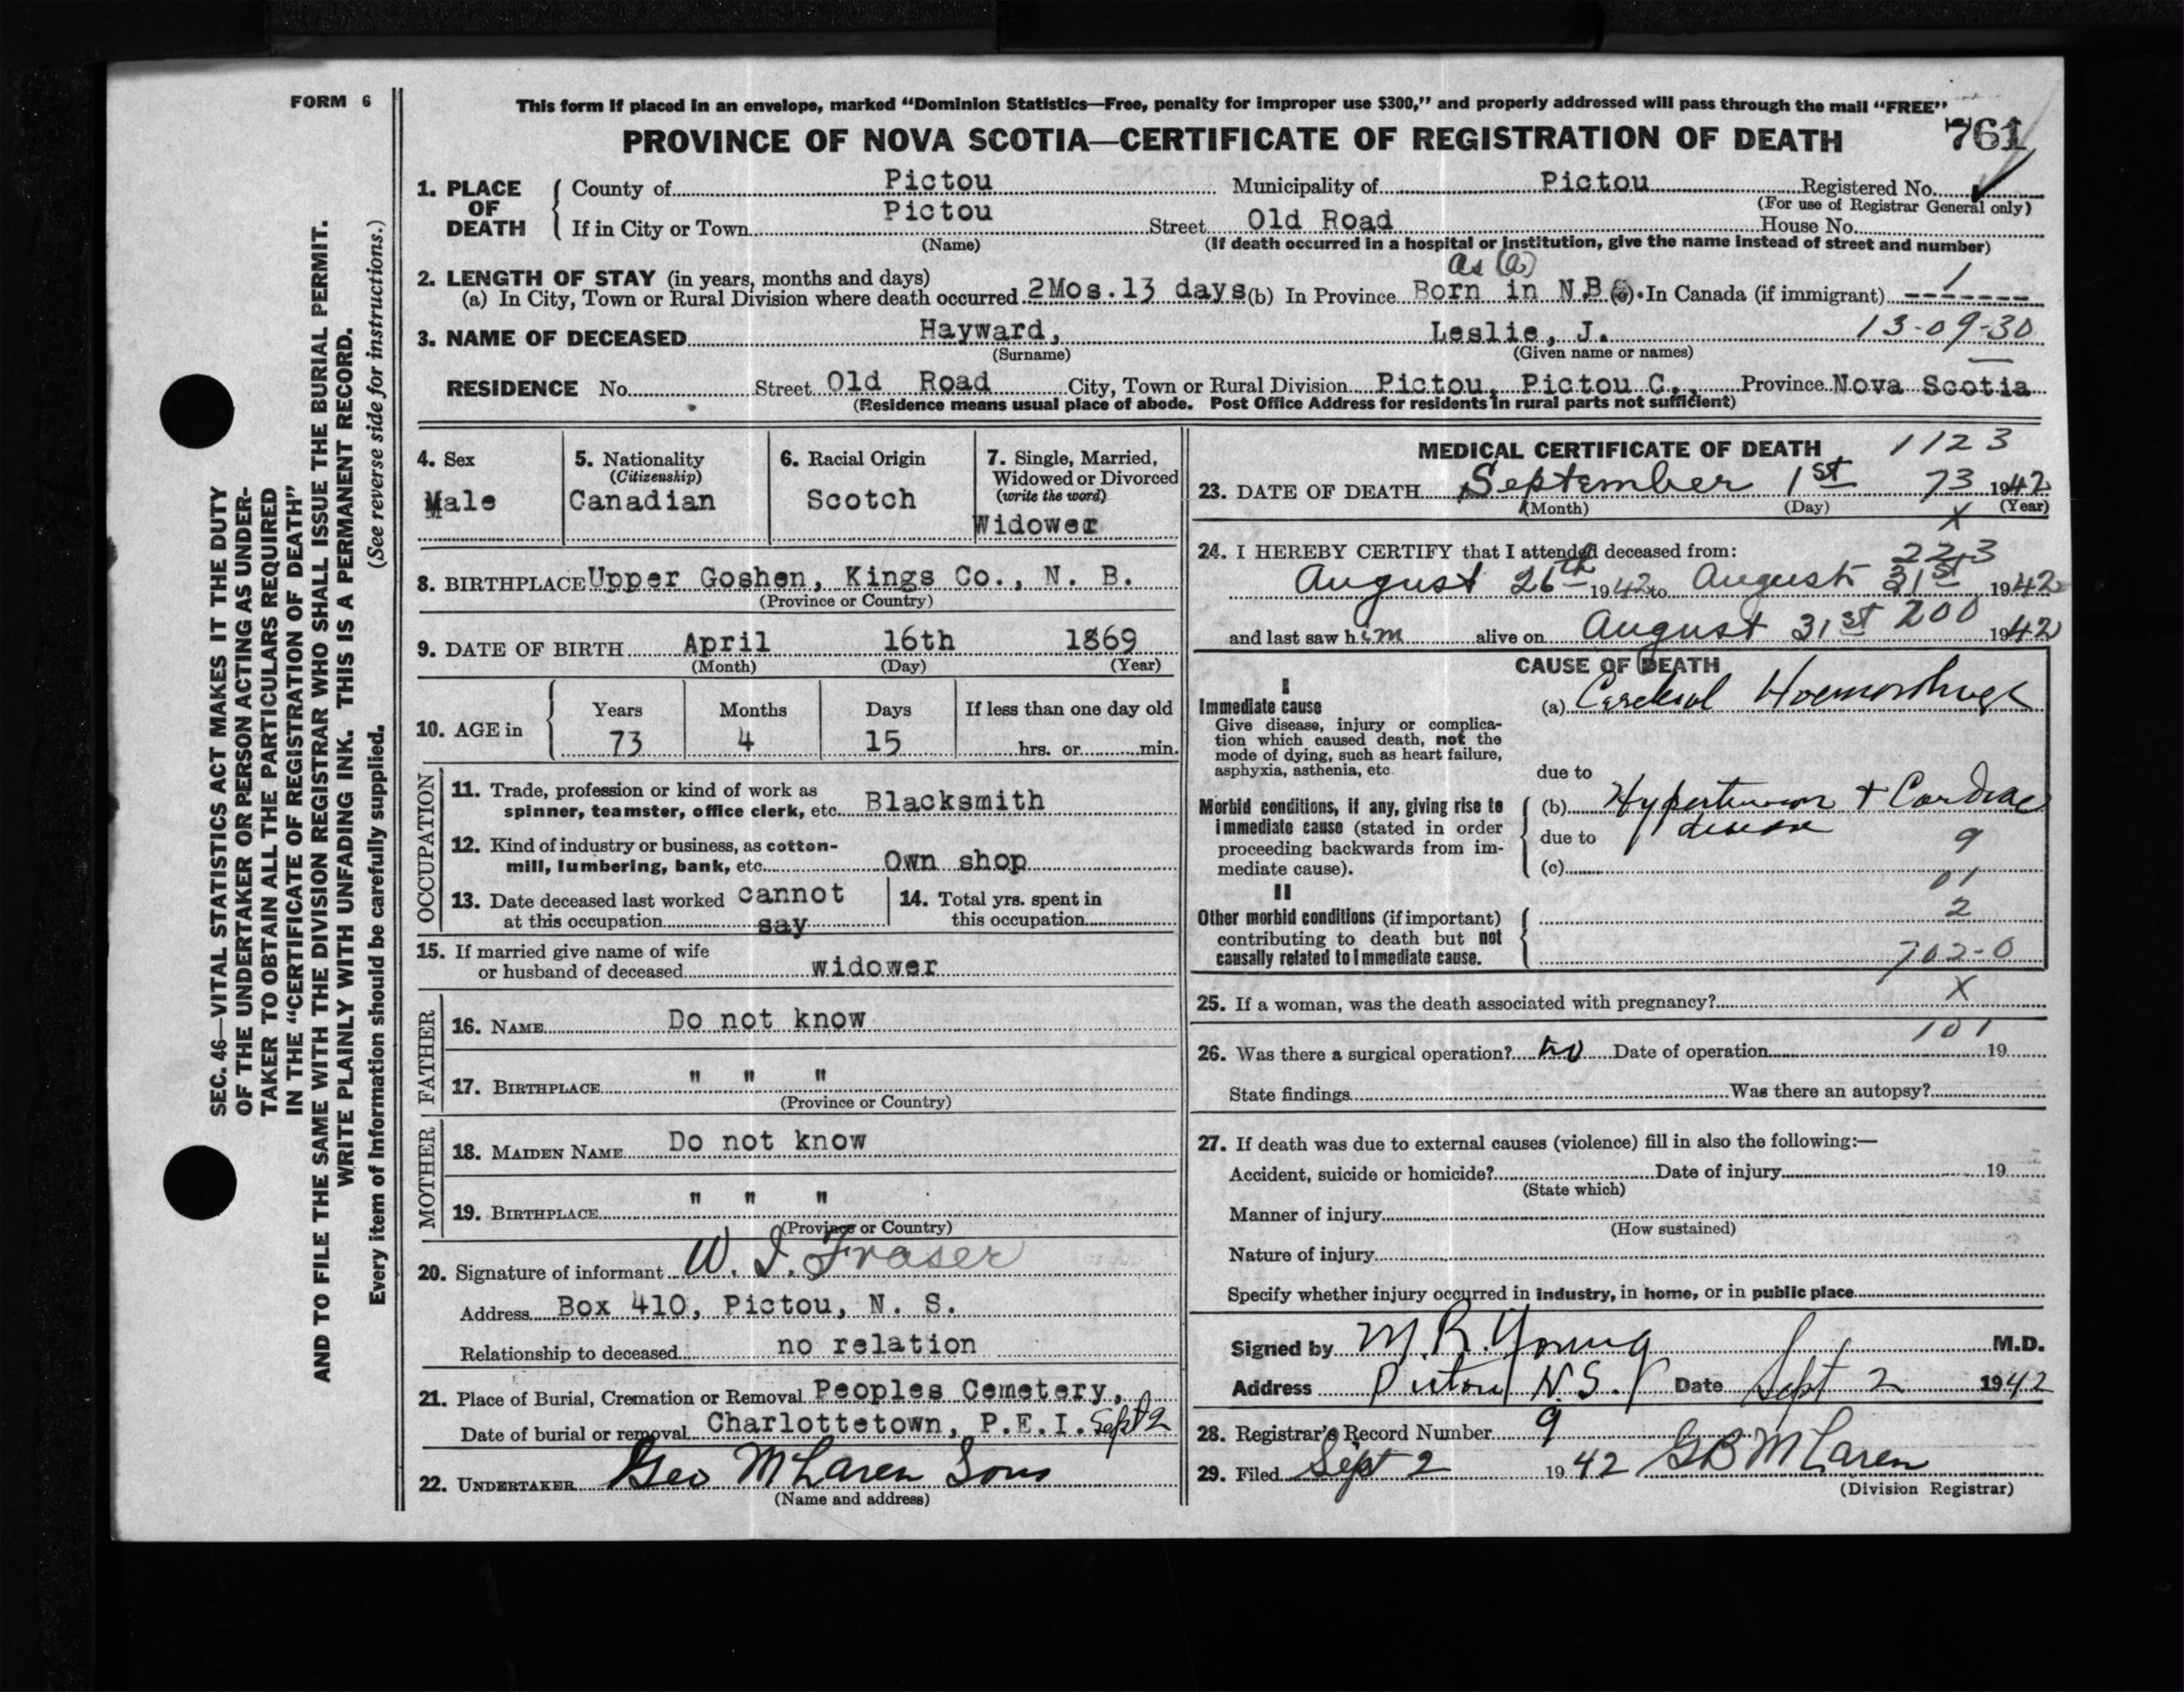 FORM 6
This form if placed in an envelope, marked “Dominion Statistics—Free, penalty for improper use $300,” and properly addressed will pass through the mail “FREE”
PROVINCE OF NOVA SCOTIA—CERTIFICATE OF REGISTRATION OF DEATH 761
SEC. 46—VITAL STATISTICS ACT MAKES IT THE DUTY
OF THE UNDERTAKER OR PERSON ACTING AS UNDER-
TAKER TO OBTAIN ALL THE PARTICULARS REQUIRED
IN THE “CERTIFICATE OF REGISTRATION OF DEATH”
AND TO FILE THE SAME WITH THE DIVISION REGISTRAR WHO SHALL ISSUE THE BURIAL PERMIT.
WRITE PLAINLY WITH UNFADING INK. THIS IS A PERMANENT RECORD.
Every item of information should be carefully supplied. (See reverse side for instructions.)
1. PLACE OF DEATH
County of Pictou Municipality of Pictou Registered No.
(For use of Registrar General only)
If in City or Town Pictou Street Old Road House No.
(Name) (If death occurred in a hospital or institution, give the name instead of street and number)
2. LENGTH OF STAY (in years, months and days) as (a)
(a) In City, Town or Rural Division where death occurred 2Mos.13 days (b) In Province Born in N.B. (c) In Canada (if immigrant) ------- 1
3. NAME OF DECEASED Hayward, Leslie, J. 13-09-30
(Surname) (Given name or names)
RESIDENCE No. Street Old Road City, Town or Rural Division Pictou, Pictou C., Province Nova Scotia
(Residence means usual place of abode. Post Office Address for residents in rural parts not sufficient)
4. Sex
Male
5. Nationality
(Citizenship)
Canadian
6. Racial Origin
Scotch
7. Single, Married,
Widowed or Divorced
(write the word)
Widower
8. BIRTHPLACE Upper Goshen, Kings Co., N. B.
(Province or Country)
9. DATE OF BIRTH April 16th 1869
(Month) (Day) (Year)
10. AGE in
Years Months Days If less than one day old
73 4 15 hrs. or min.
OCCUPATION
11. Trade, profession or kind of work as
spinner, teamster, office clerk, etc. Blacksmith
12. Kind of industry or business, as cotton-
mill, lumbering, bank, etc. Own shop
13. Date deceased last worked cannot
at this occupation say
14. Total yrs. spent in
this occupation
15. If married give name of wife
or husband of deceased widower
FATHER
16. NAME Do not know
17. BIRTHPLACE " " "
(Province or Country)
MOTHER
18. MAIDEN NAME Do not know
19. BIRTHPLACE " " "
(Province or Country)
20. Signature of informant W. I. Fraser
Address Box 410, Pictou, N. S.
Relationship to deceased no relation
21. Place of Burial, Cremation or Removal Peoples Cemetery,
Date of burial or removal Charlottetown, P.E.I. Sept 2
22. UNDERTAKER Geo McLaren Sons
(Name and address)
MEDICAL CERTIFICATE OF DEATH 1123
23. DATE OF DEATH September 1st 73 1942
(Month) (Day) (Year)
X
24. I HEREBY CERTIFY that I attended deceased from: 223
August 26th 1942 to August 31st 1942
and last saw him alive on August 31st 200 1942
CAUSE OF DEATH
I
Immediate cause (a) Cerebral Haemorrhage
Give disease, injury or complica-
tion which caused death, not the
mode of dying, such as heart failure,
asphyxia, asthenia, etc.
due to
Morbid conditions, if any, giving rise to
immediate cause (stated in order
proceeding backwards from im-
mediate cause).
(b) Hypertension + Cardiac
disease
due to 9
(c)
01
II
Other morbid conditions (if important)
contributing to death but not
causally related to immediate cause.
2
702-0
25. If a woman, was the death associated with pregnancy? X
101
26. Was there a surgical operation? no Date of operation 19
State findings Was there an autopsy?
27. If death was due to external causes (violence) fill in also the following:—
Accident, suicide or homicide? Date of injury 19
(State which)
Manner of injury
(How sustained)
Nature of injury
Specify whether injury occurred in industry, in home, or in public place
Signed by M. R. Young M.D.
Address Pictou N.S. Date Sept 2 1942
28. Registrar's Record Number 9
29. Filed Sept 2 1942 GB McLaren
(Division Registrar)